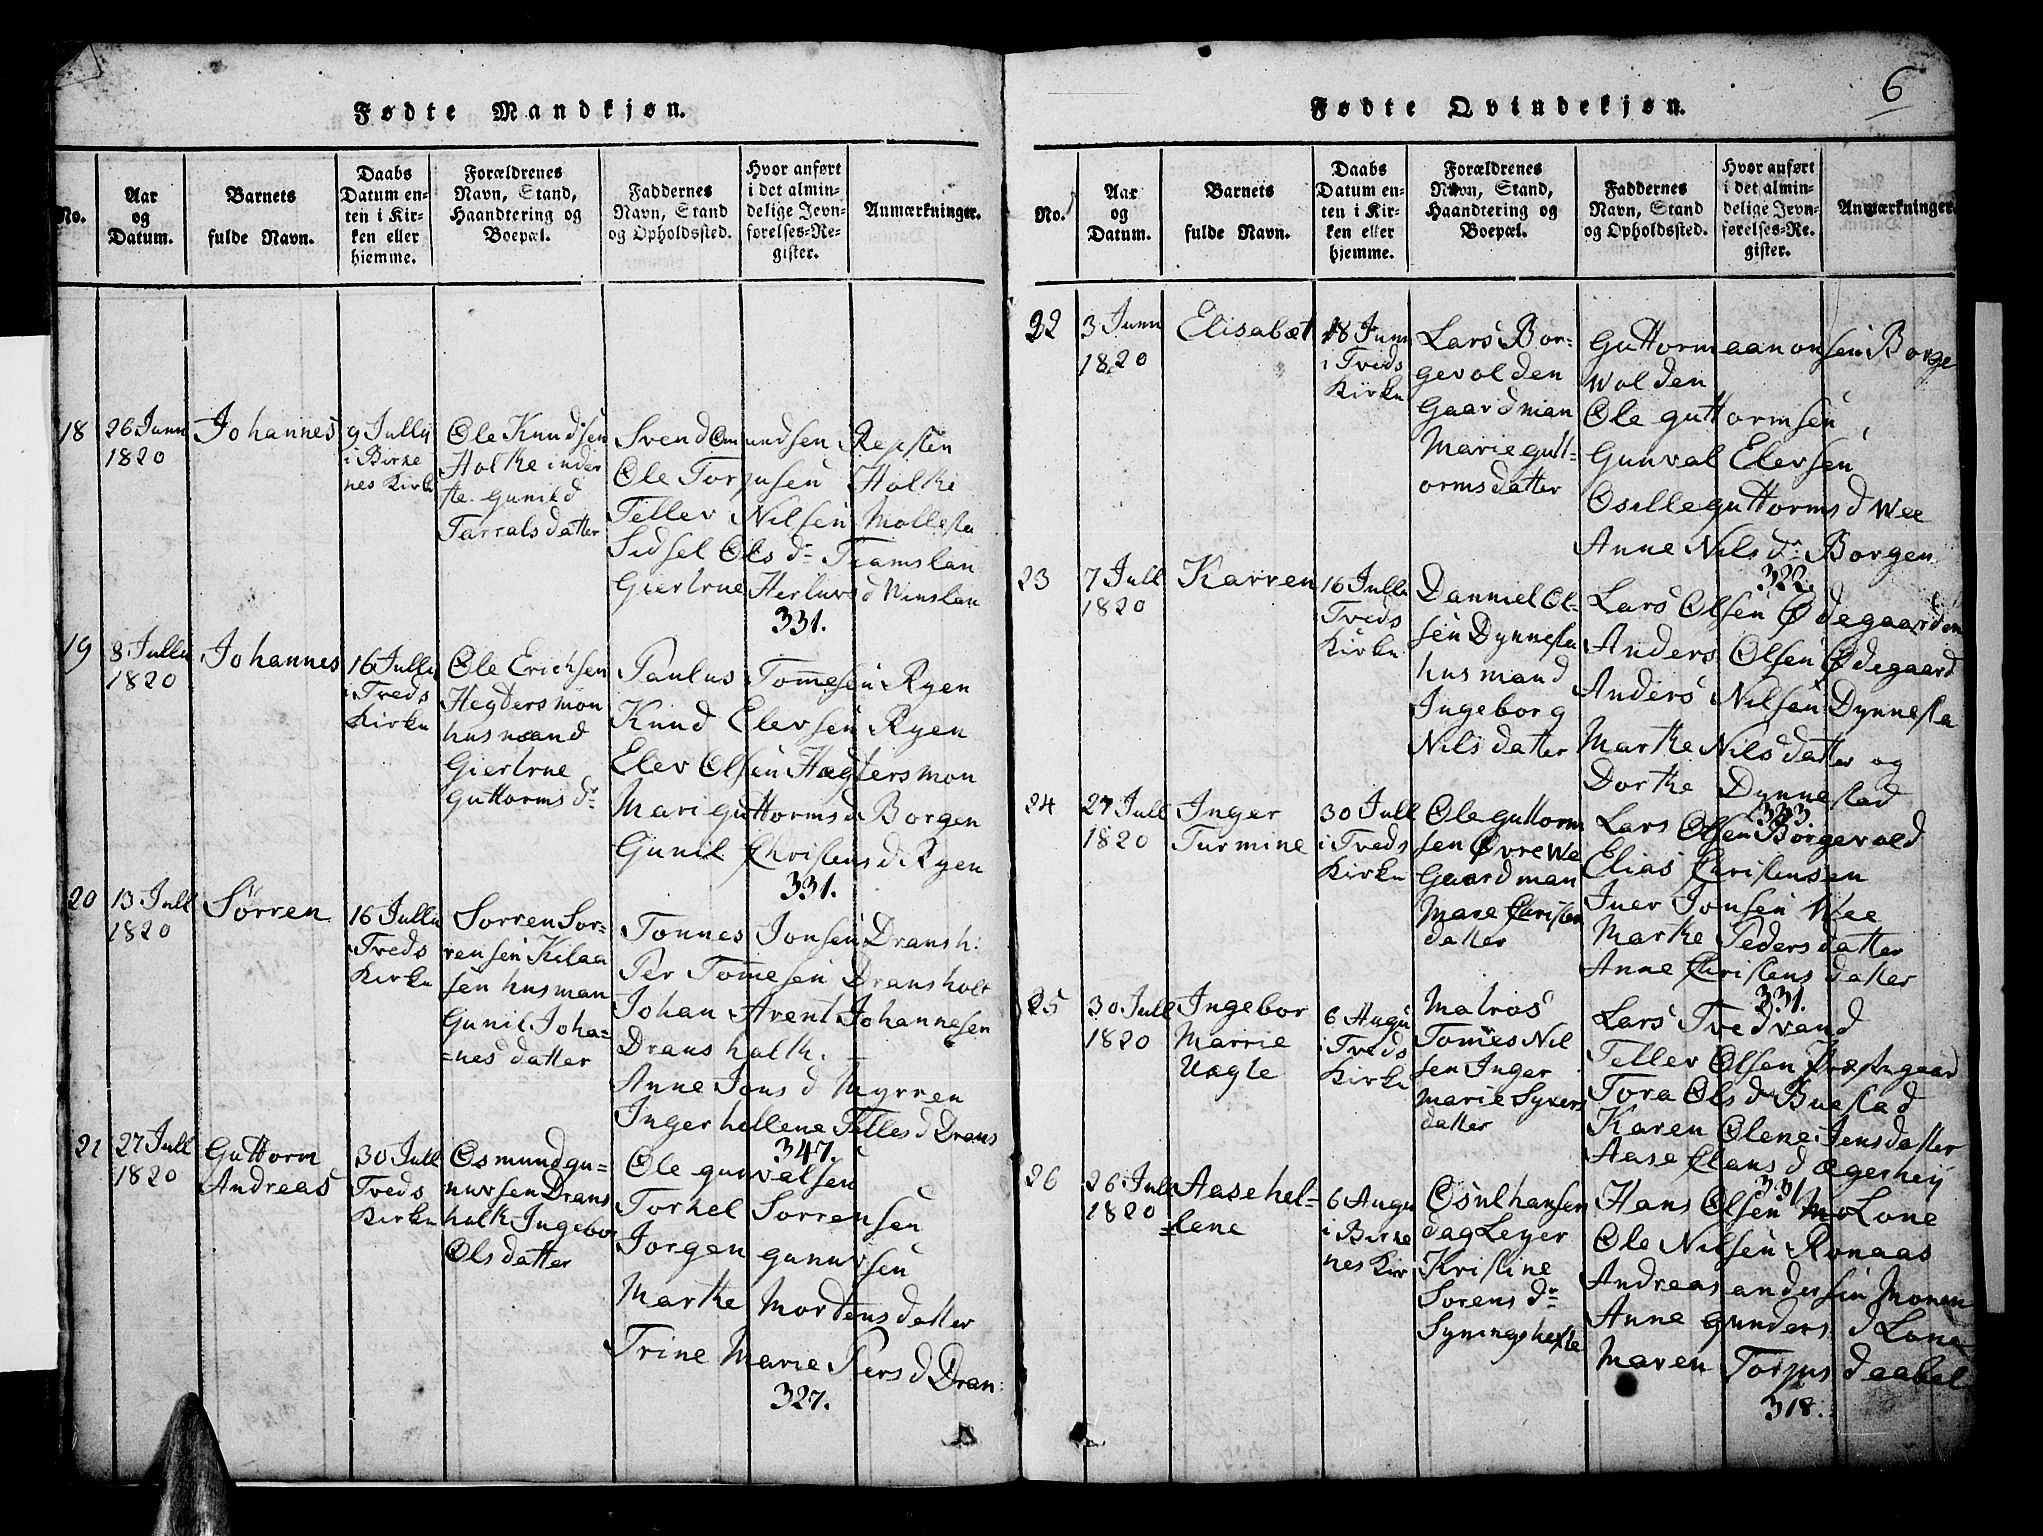 6
Fødte Mandkjøn.
No.
Aar
og
Datum.
Barnets
fulde Navn.
Daabs
Datum en-
ten i Kir-
ken eller
hjemme.
Forældrenes
Navn, Stand,
Haandtering og
Boepæl.
Faddernes
Navn, Stand
og Opholdssted.
Hvor anført
i det almin-
delige Jevn-
førelses-Re-
gister.
Anmærkninger.
18
26 Junn
1820
Johannes
9 Jullij
i Birke
nes Kirk
Ole Knudsen
Holke inder
ste. Gunild
Tarralsdatter
Svend Omundsen Repsten
Ole Torjusen Holke
Tellev Nilsen Mollesta
Sidsel Ols dr Tramslan
Giertrue Herluvs d Winslan
331.
19
8 Jullij
1820
Johannes
16 Jullij
i Treds
Kirke
Ole Erichsen
Hegdersmon
husmand
Giertrue
Guttorms dr
Paulus Tomesen Ryen
Knud Elevsen Ryen
Elev Olsen Hægdersmon
Mari guttorms d Borgen
Gunil Christens d. Ryen
331.
20
13 Jull
1820
Sørren
16 Jullij
Treds
Kirke
Sorren Sor-
rensen Kilaa
sen husman
Gunil Joha-
=nes datter
Tonnes Jonsen Dransh:
Per Tomesen Dransholt
Johan Arent Johannesen
Dransholt.
Anne Jons d Myrren
Inger hellene Telles d Drans
347.
21
27 Jull
1820
Guttorm
Andreas
30 Jull
Treds
Kirke
Osmund gu-
nuvsen Drans
holt Ingebor
Olsdatter
Ole gunvalsen
Torkel Sorrensen
Jorgen gunuvsen
Marthe Mordensdatter
Trine Marie Pers d Dran:
327.
Fødte Qvindekjøn.
No.
Aar
og
Datum.
Barnets
fulde Navn.
Daabs
Datum en-
ten i Kir-
ken eller
hjemme.
Forældrenes
Navn, Stand,
Haandtering og
Boepæl.
Faddernes
Navn, Stand
og Opholdssted.
Hvor anført
i det almin-
delige Jevn-
førelses-Re-
gister.
Anmærkninger.
22
3 Junn
1820
Elisabæt
18 Junn
i Treds
Kirke
Lars Bor-
gevolden
Gaardman
Marie gutt-
ormsdatter
Guttorm aanonsen Borge
Wolden
Ole guttormsen
Gunval Elevsen
Osille guttorms d Wee
Anne Nils dr: Borgen
322.
23
7 Jull
1820
Karren
16 Jullij
Treds
Kirke
Danniel Ol-
sen Dynnesta
husmand
Ingeborg
Nilsdatter
Lars Olsen Ødegaarden
Anders Olsen Ødegaard
Anders Nilsen Dynnesta
Marthe Nilsdatter og
Dorthe Dynnestad
333.
24
27 Jull
1820
Inger
Turmine
30 Jull
i Treds
Kirke
Ole guttorm
sen Øvre We
Gaardman
Mare Christen
datter
Lars Olsen Borgevold
Elias Christensen
Iver Jonsen Wee
Marthe Pedersdatter
Anne Christensdatter
331.
25
30 Jull
1820
Ingebor
Marrie
Uægte
6 Augu
i Treds
Kirke
Matros
Tomes Nil
sen Inger
marie Syvers
datter
Lars Tvedvand
Tellev Olsen Præstegaard
Tora Ols d Buestad
Karen Olene Jensdatter
Aase Clans d ægerheij
331.
26
26 Jull
1820
Aase hel-
=lene
6 Augu
i Birke
nes Kir
Osul hansen
dag Leyer
Kristine
Sorens dr
Syningshefte
Hans Olsen Mo Lone
Ole Nilsen Ronaas
Andreas andersen Monen
Anne gunders d Lone
Maren Torjus d aabel
318.